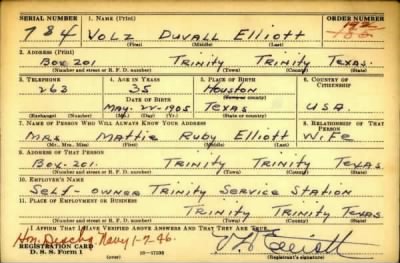 SERIAL NUMBER 1. NAME (Print) ORDER NUMBER
784 VOLZ DUVALL ELLIOTT
(First) (Middle) (Last)
2. ADDRESS (Print)
BOX 201 TRINITY TRINITY TEXAS.
(Number and street or R. F. D. number) (Town) (County) (State)
3. TELEPHONE 4. AGE IN YEARS 5. PLACE OF BIRTH 6. COUNTRY OF CITIZENSHIP
263 35 HOUSTON
DATE OF BIRTH (Town or county)
MAY-22-1905 TEXAS U.S.A.
(Exchange) (Number) (Mo.) (Day) (Yr.) (State or country)
7. NAME OF PERSON WHO WILL ALWAYS KNOW YOUR ADDRESS 8. RELATIONSHIP OF THAT PERSON
MRS MATTIE RUBY ELLIOTT WIFE
(Mr., Mrs., Miss) (First) (Middle) (Last)
9. ADDRESS OF THAT PERSON
BOX-201. TRINITY TRINITY TEXAS
(Number and street or R. F. D. number) (Town) (County) (State)
10. EMPLOYER'S NAME
SELF-OWNER TRINITY SERVICE STATION
11. PLACE OF EMPLOYMENT OR BUSINESS
TRINITY TRINITY TEXAS.
(Number and street or R. F. D. number) (Town) (County) (State)
I AFFIRM THAT I HAVE VERIFIED ABOVE ANSWERS AND THAT THEY ARE TRUE.
Hon. Dischg. Navy 1-7-46.
REGISTRATION CARD
D. S. S. Form 1 (over) 16—17105 (Registrant's signature)